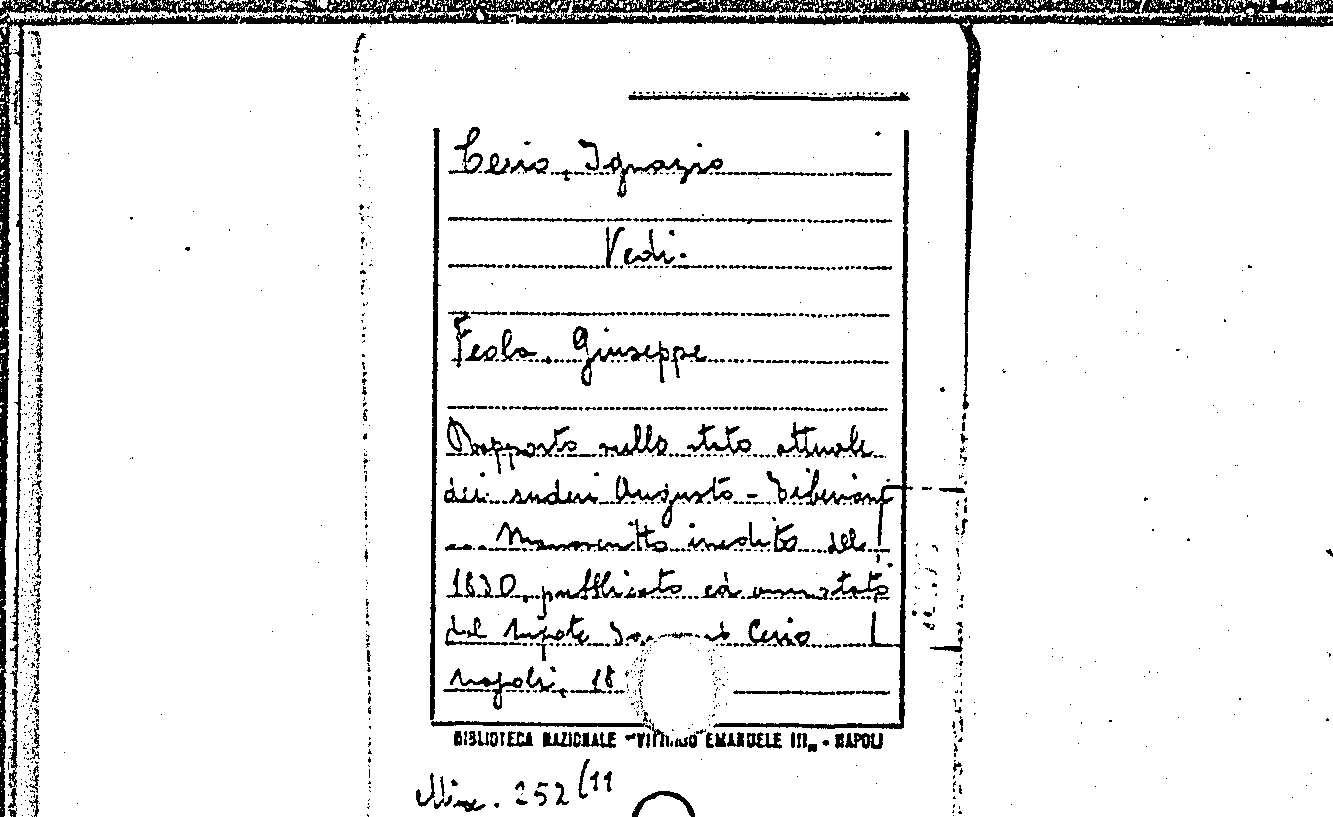 Cerio, Ignazio
Vedi.
Feola, Giuseppe
Rapporto sullo stato attuale
dei ruderi Augusto - Tiberiani
... Manoscritto inedito del
1830, pubblicato ed annotato
dal nipote Cerio
Napoli, 18
BIBLIOTECA NAZIONALE "VITTORIO EMANUELE III" - NAPOLI
Misc. 252 (11